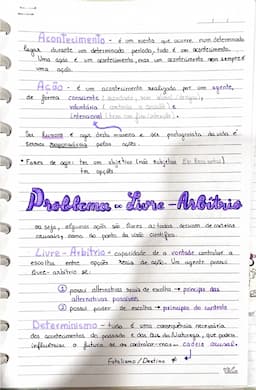 Acontecimento - é um evento que ocorre num determinado
lugar durante um determinado período, tudo é um acontecimento.
Uma ação é um acontecimento, mas um acontecimento nem sempre é
uma ação.
Ação - é um acontecimento realizado por um agente,
de forma consciente
voluntária
intencional
Ser humano é agir desta maneira e ser protagonista da vida e
sermos responsáveis pelos atos.
ter um objetivo
ter opções.
Problema do Livre-Arbítrio
ou seja, algumas ações são livres
causal como do ponto de vista científico.
Livre-Arbítrio - capacidade de a vontade controlar a
escolha entre opções reais de ação. Um agente possui
livre-arbítrio se:
① possui alternativas reais de escolha → princípio das
alternativas possíveis
② possui poder de escolha → princípio do controlo
Determinismo - tudo é uma consequência necessária
dos acontecimentos do passado e das Leis da Natureza, que podem
influenciar o futuro cadeia causal.
Fatalismo / Destino ≠